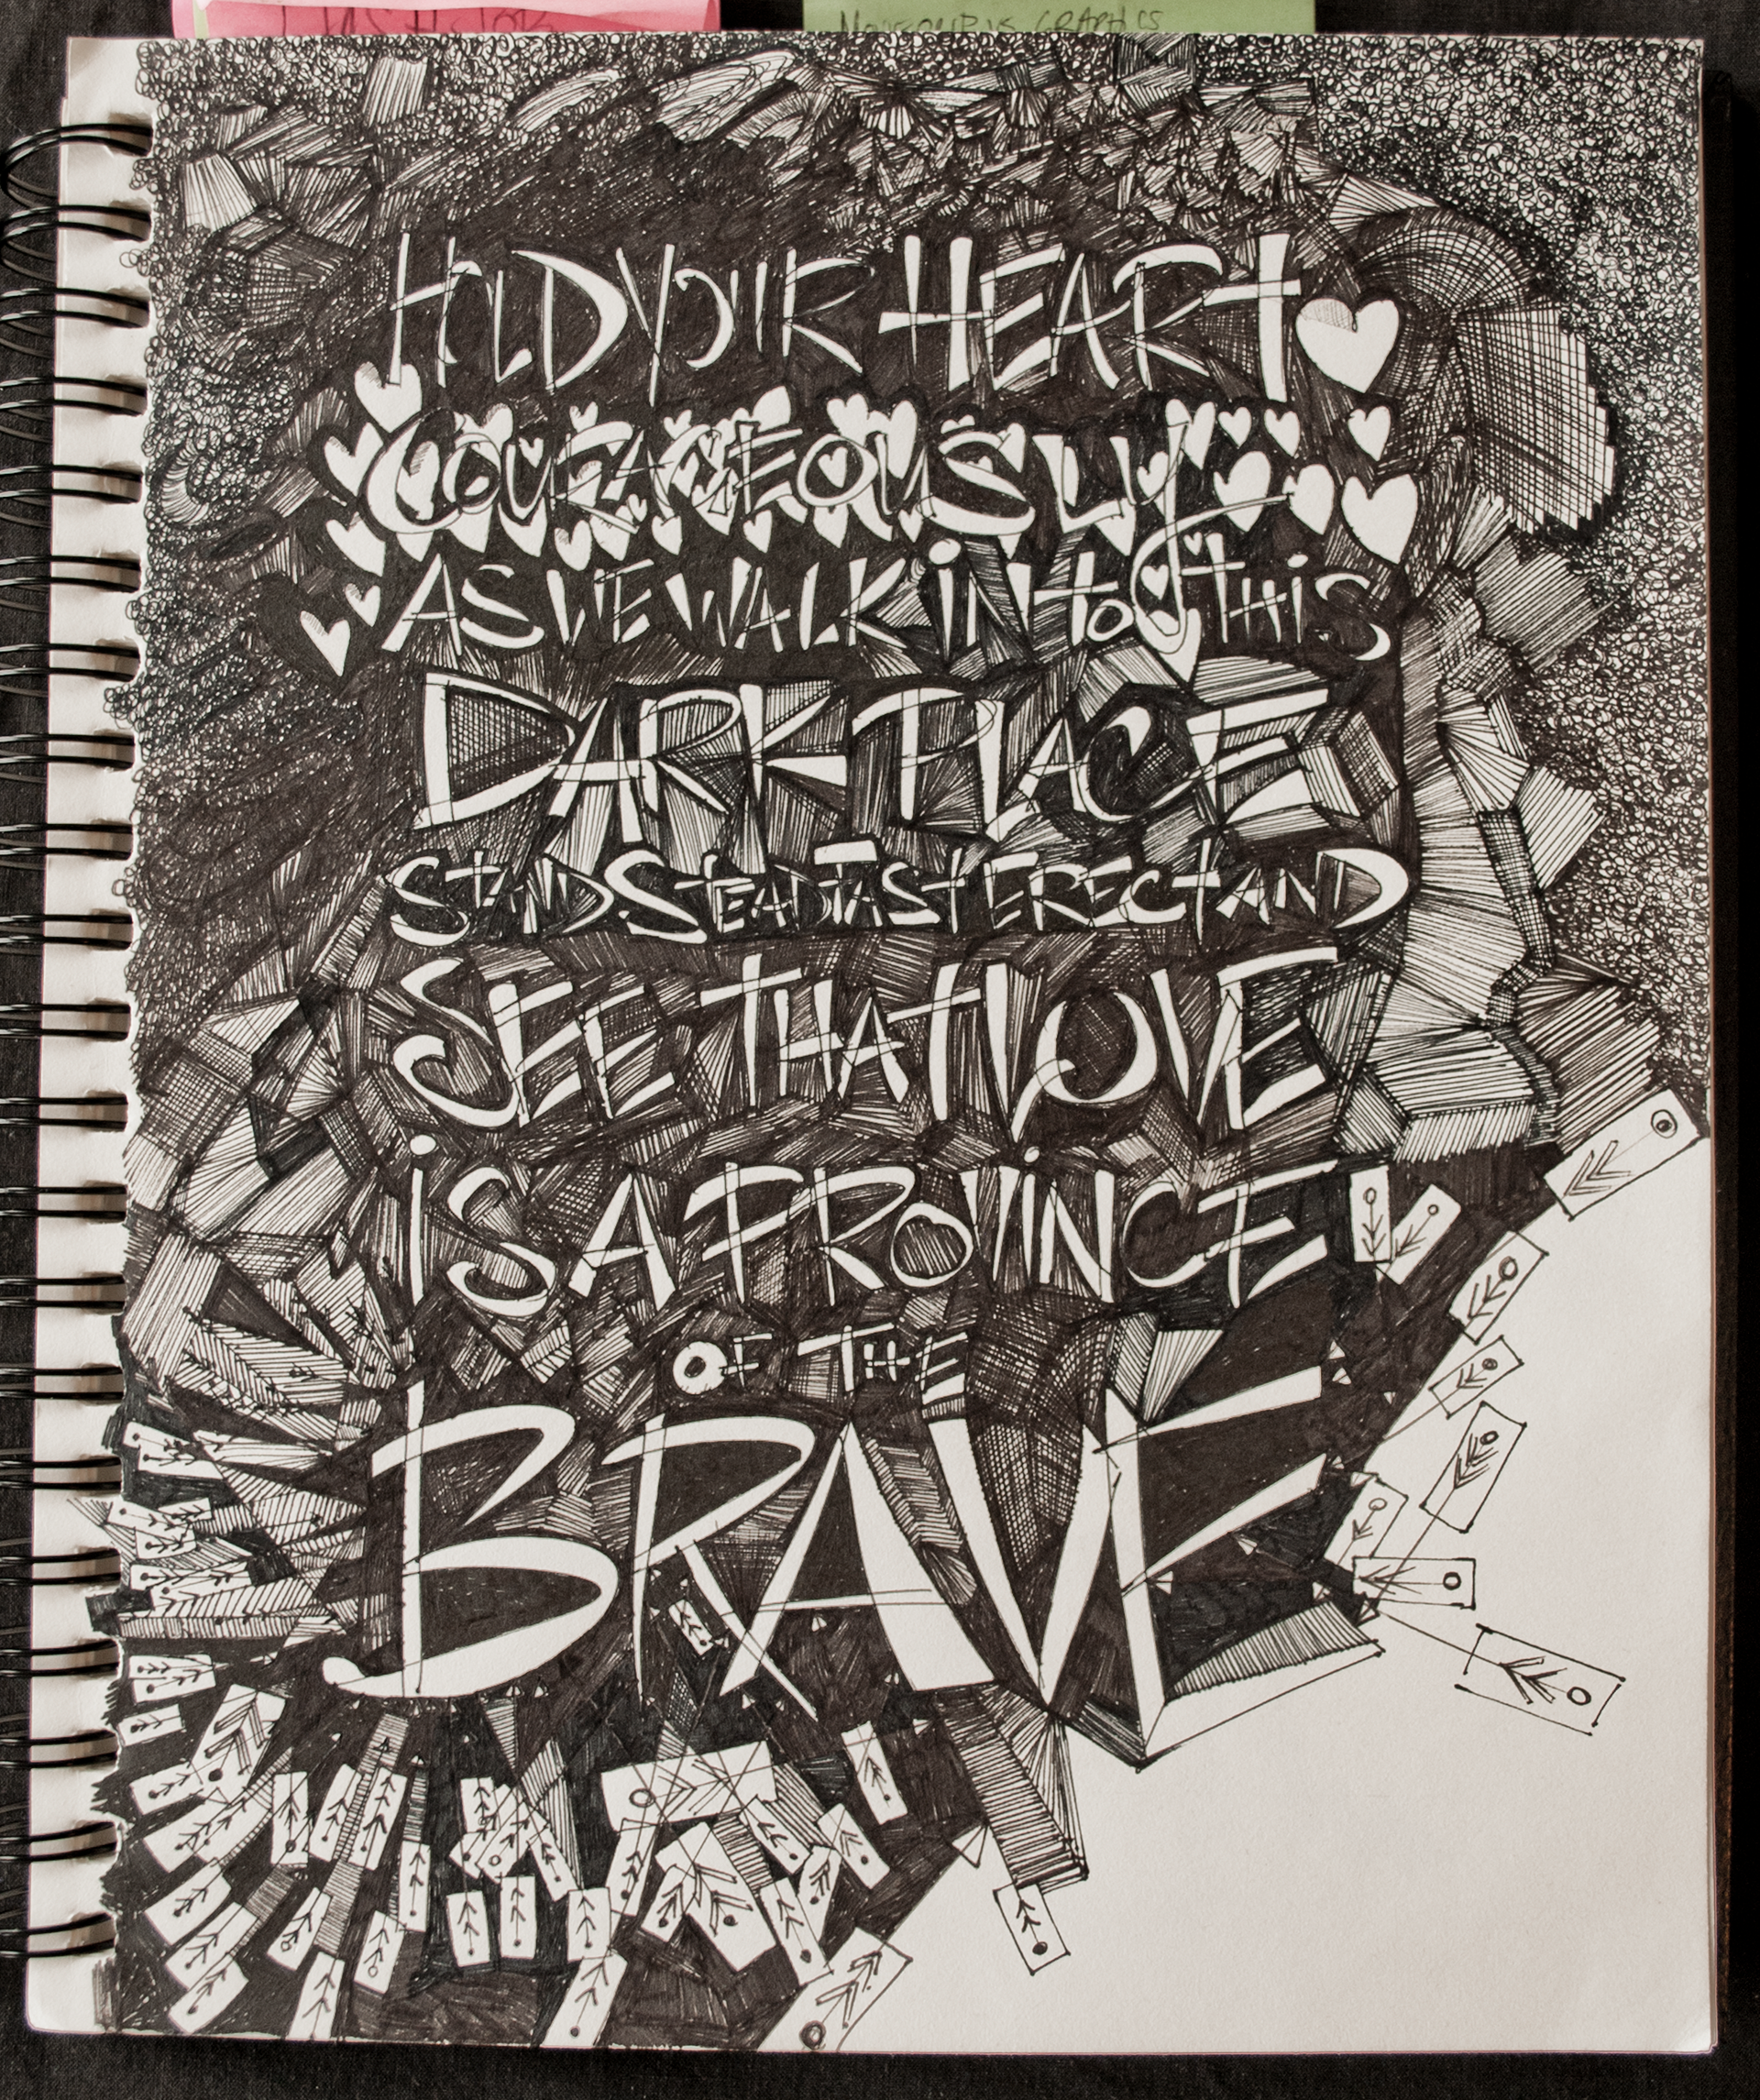 GRAPHICS
HOLD YOUR HEART
COURAGEOUSLY
AS WE WALK iN to tHiS
DARK PLACE
STAND STEADFAST ERECT AND
SEE THAT LOVE
iS A PROViNCE
OF THE
BRAVE